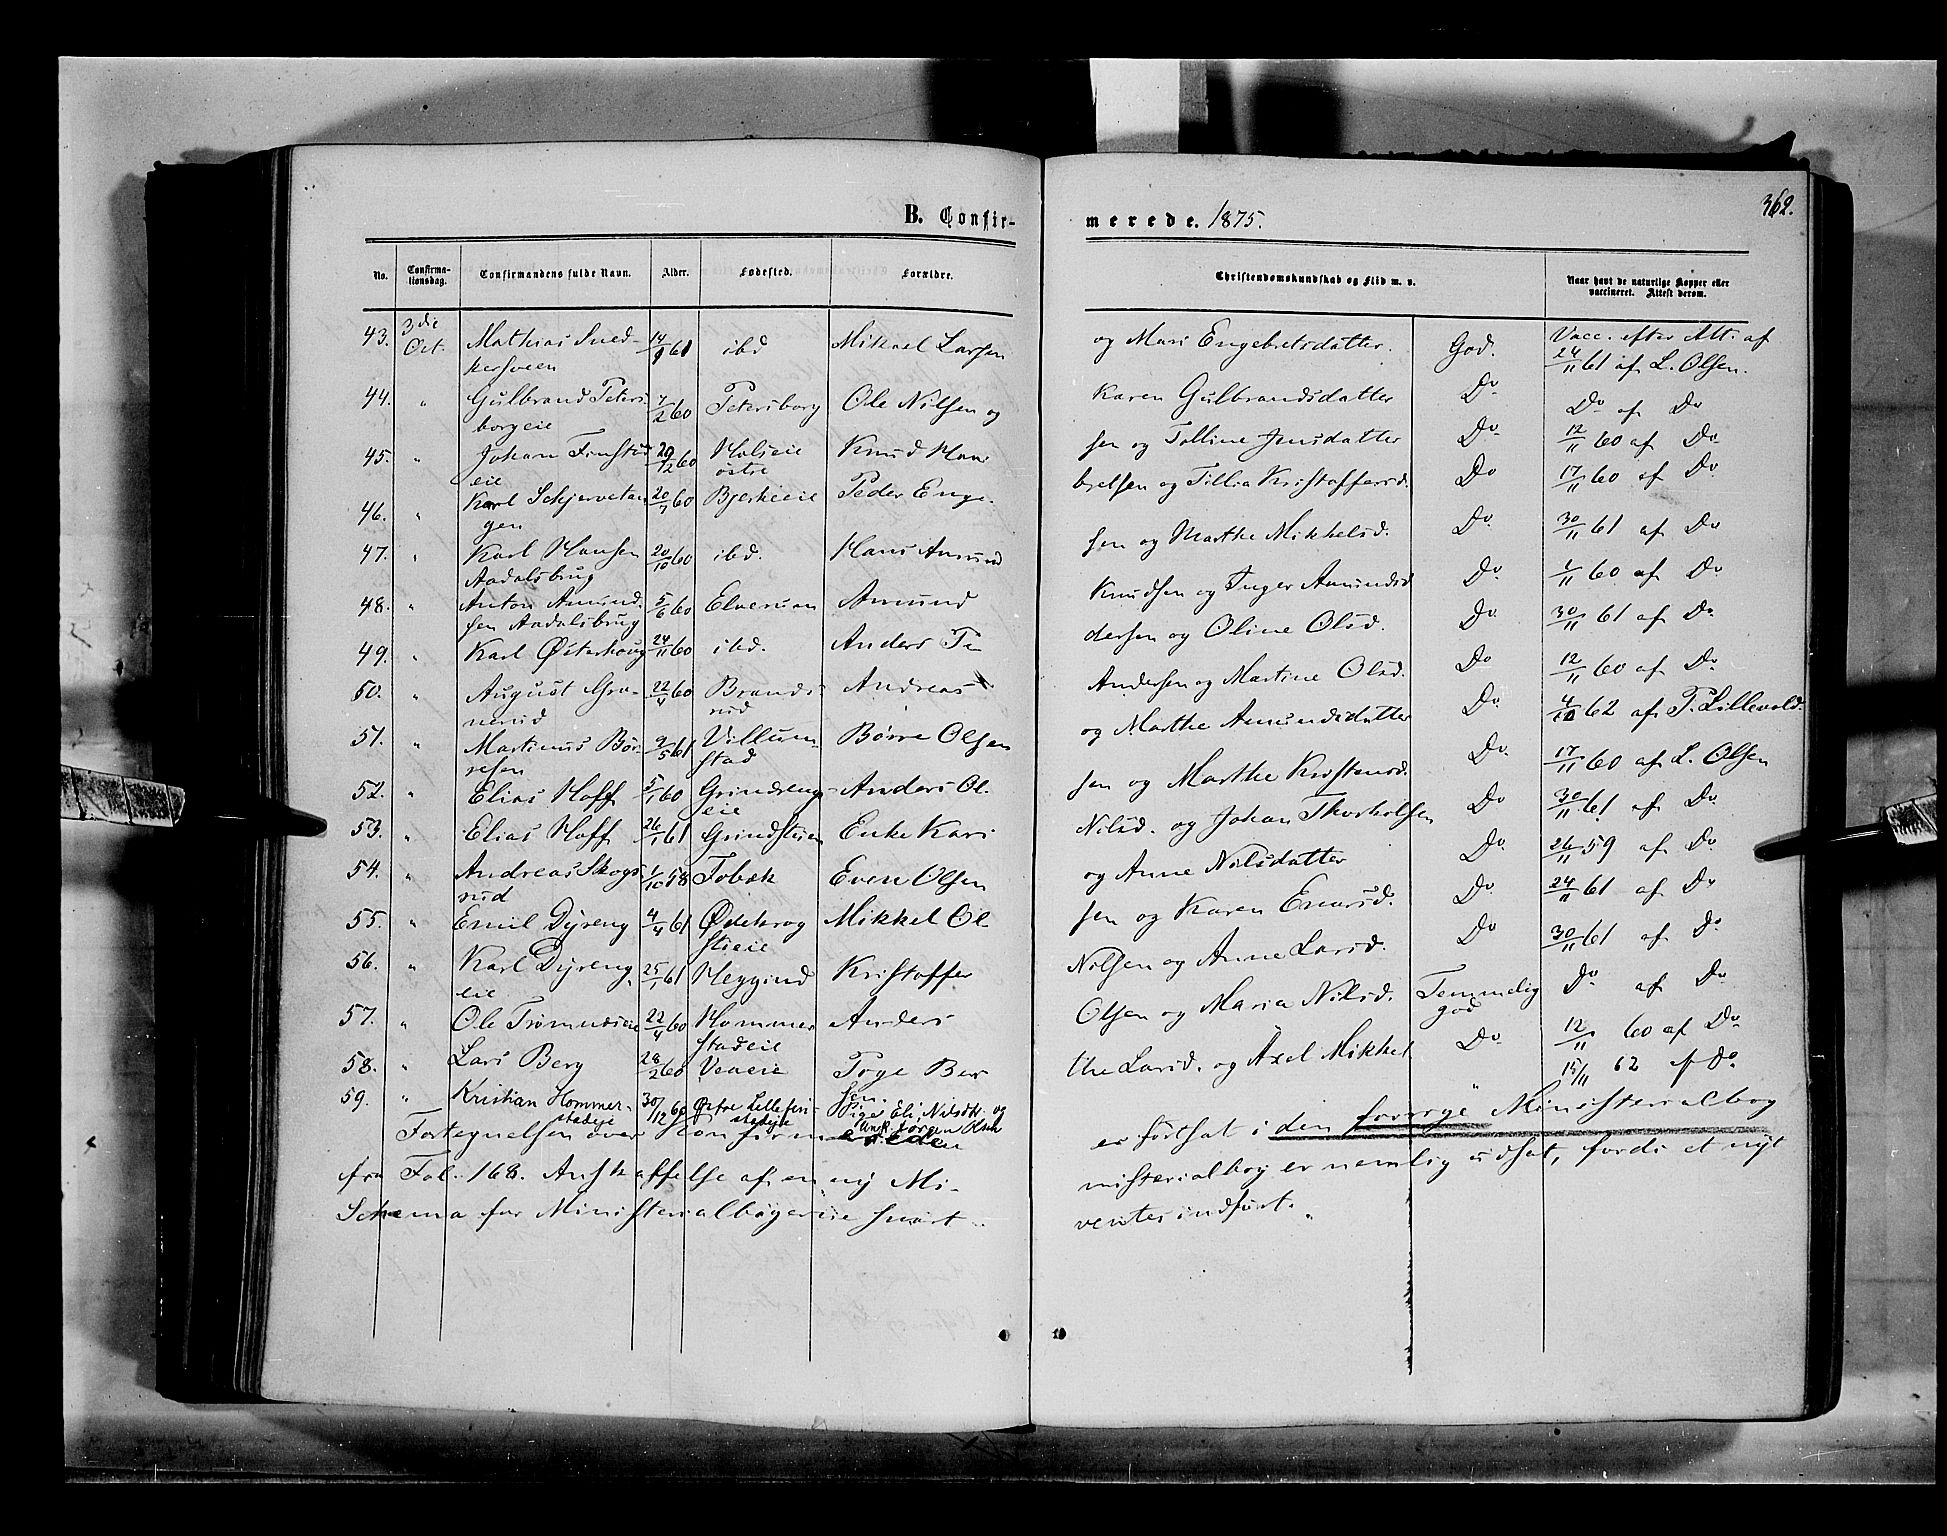 362.
B. Confir- merede. 1875.
No. Confirma-tionsdag. Confirmandens fulde Navn. Alder. Fødested. Forældre. Christendomskundskab og Flid m. v. Naar havt de naturlige Kopper eller vaccineret. Attest derom.
43. 3die Oct. Mathias Sned- 14/9 61 ibd Mikael Larsen og Mari Engebretsdatter. God. Vacc. efter Att. af
kersveen 24/11 61 af L. Olsen.
44. " Gulbrand Peters 7/2 60 Petersborg Ole Nilsen og Karen Gulbrandsdatter Do Do af Do
borgeie
45. " Johan Finstad 29/12 60 Holseie Knud Han sen og Talline Jensdatter Do 12/11 60 af Do
eie østre
46. " Karl Schjervetan 20/7 60 Bjerkeeie Peder Enge- bretsen og Tillia Kristoffersd. Do 17/11 60 af Do
gen
47. " Karl Hansen 20/10 60 ibd. Hans Amund sen og Marthe Mikkelsd. Do 30/11 61 af Do
Aadalsbrug
48. " Anton Amund 5/6 60 Elverum Amund Knudsen og Inger Amundsd Do 1/11 60 af Do
sen Aadalsbrug
49. " Karl Østerhaug 24/11 60 ibd. Anders Pe dersen og Oline Olsd. Do 30/11 61 af Do
50. " August Gra- 22/4 60 Brands Andreas Andersen og Martine Olsd. Do 12/11 60 af Do
nerud rud
51. " Martinus Bør- 9/5 61 Villum- Børre Olsen og Marthe Amundsdatter Do 4/10 62 af P. Lillevold.
resen stad
52. " Elias Hoff 5/1 60 Grindeng- Anders Ol- sen og Marthe Kristensd. Do. 17/11 60 af L. Olsen
eie
53. " Elias Hoff 26/1 61 Grindstuen Enke Kari Nilsd. og Johan Thorkelsen Do 30/11 61 af Do
54. " Andreas Skogs 1/10 58 Fobæk Even Olsen og Anne Nilsdatter Do 26/11 59 af Do
rud
55. " Emil Dyreng 4/4 61 Ødekrog Mikkel Ol- sen og Karen Enersd. Do 24/11 61 af Do
stueie
56. " Karl Dyreng 25/1 61 Heggind Kristoffer Nilsen og Anne Larsd. Do 30/11 61 af Do
eie
57. " Ole Trømndseie 22/4 60 Hommer Anders Olsen og Maria Nilsd. Temmelig god Do af Do
stadeie
58. " Lars Berg 28/2 60 Veneeie Pige Ber the Larsd. og Axel Mikkel Do 12/11 60 af Do
sen.
59. " Kristian Hommer- 30/12 60 Østre Lillefin- Pige Eli Nilsdtr. og " 15/11 62 af Do
stadeje stadeje Unk. Jørgen Olsen
Fortegnelsen over Konfirmerede er fortsat i den forrige Ministerialbog
fra Fol. 168. Anskaffelse af en ny Mi- nisterialbog er nemlig udsat, fordi et nyt
Schema for Ministerialbøgerne snart ventes indført.